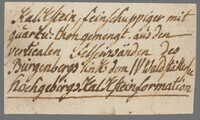 Kalkstein feinschuppiger mit
quartz: thon gemengt. aus den
verticalen Felswänden des
Bürgenbergs links dem IV Wald
Hochgebirgs Kalksteinformation